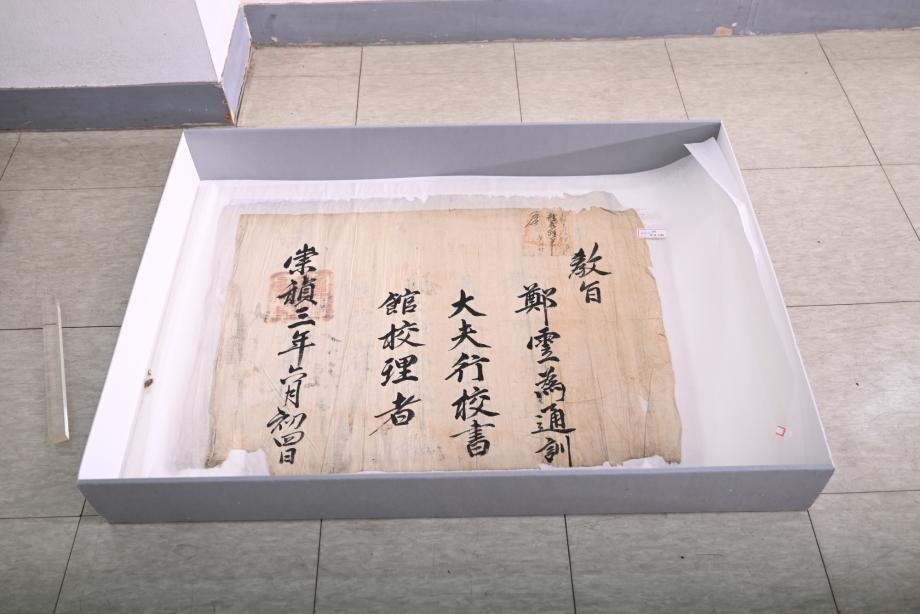 教旨
鄭雲爲通訓
大夫行校書
館校理者
崇禎三年六月初四日